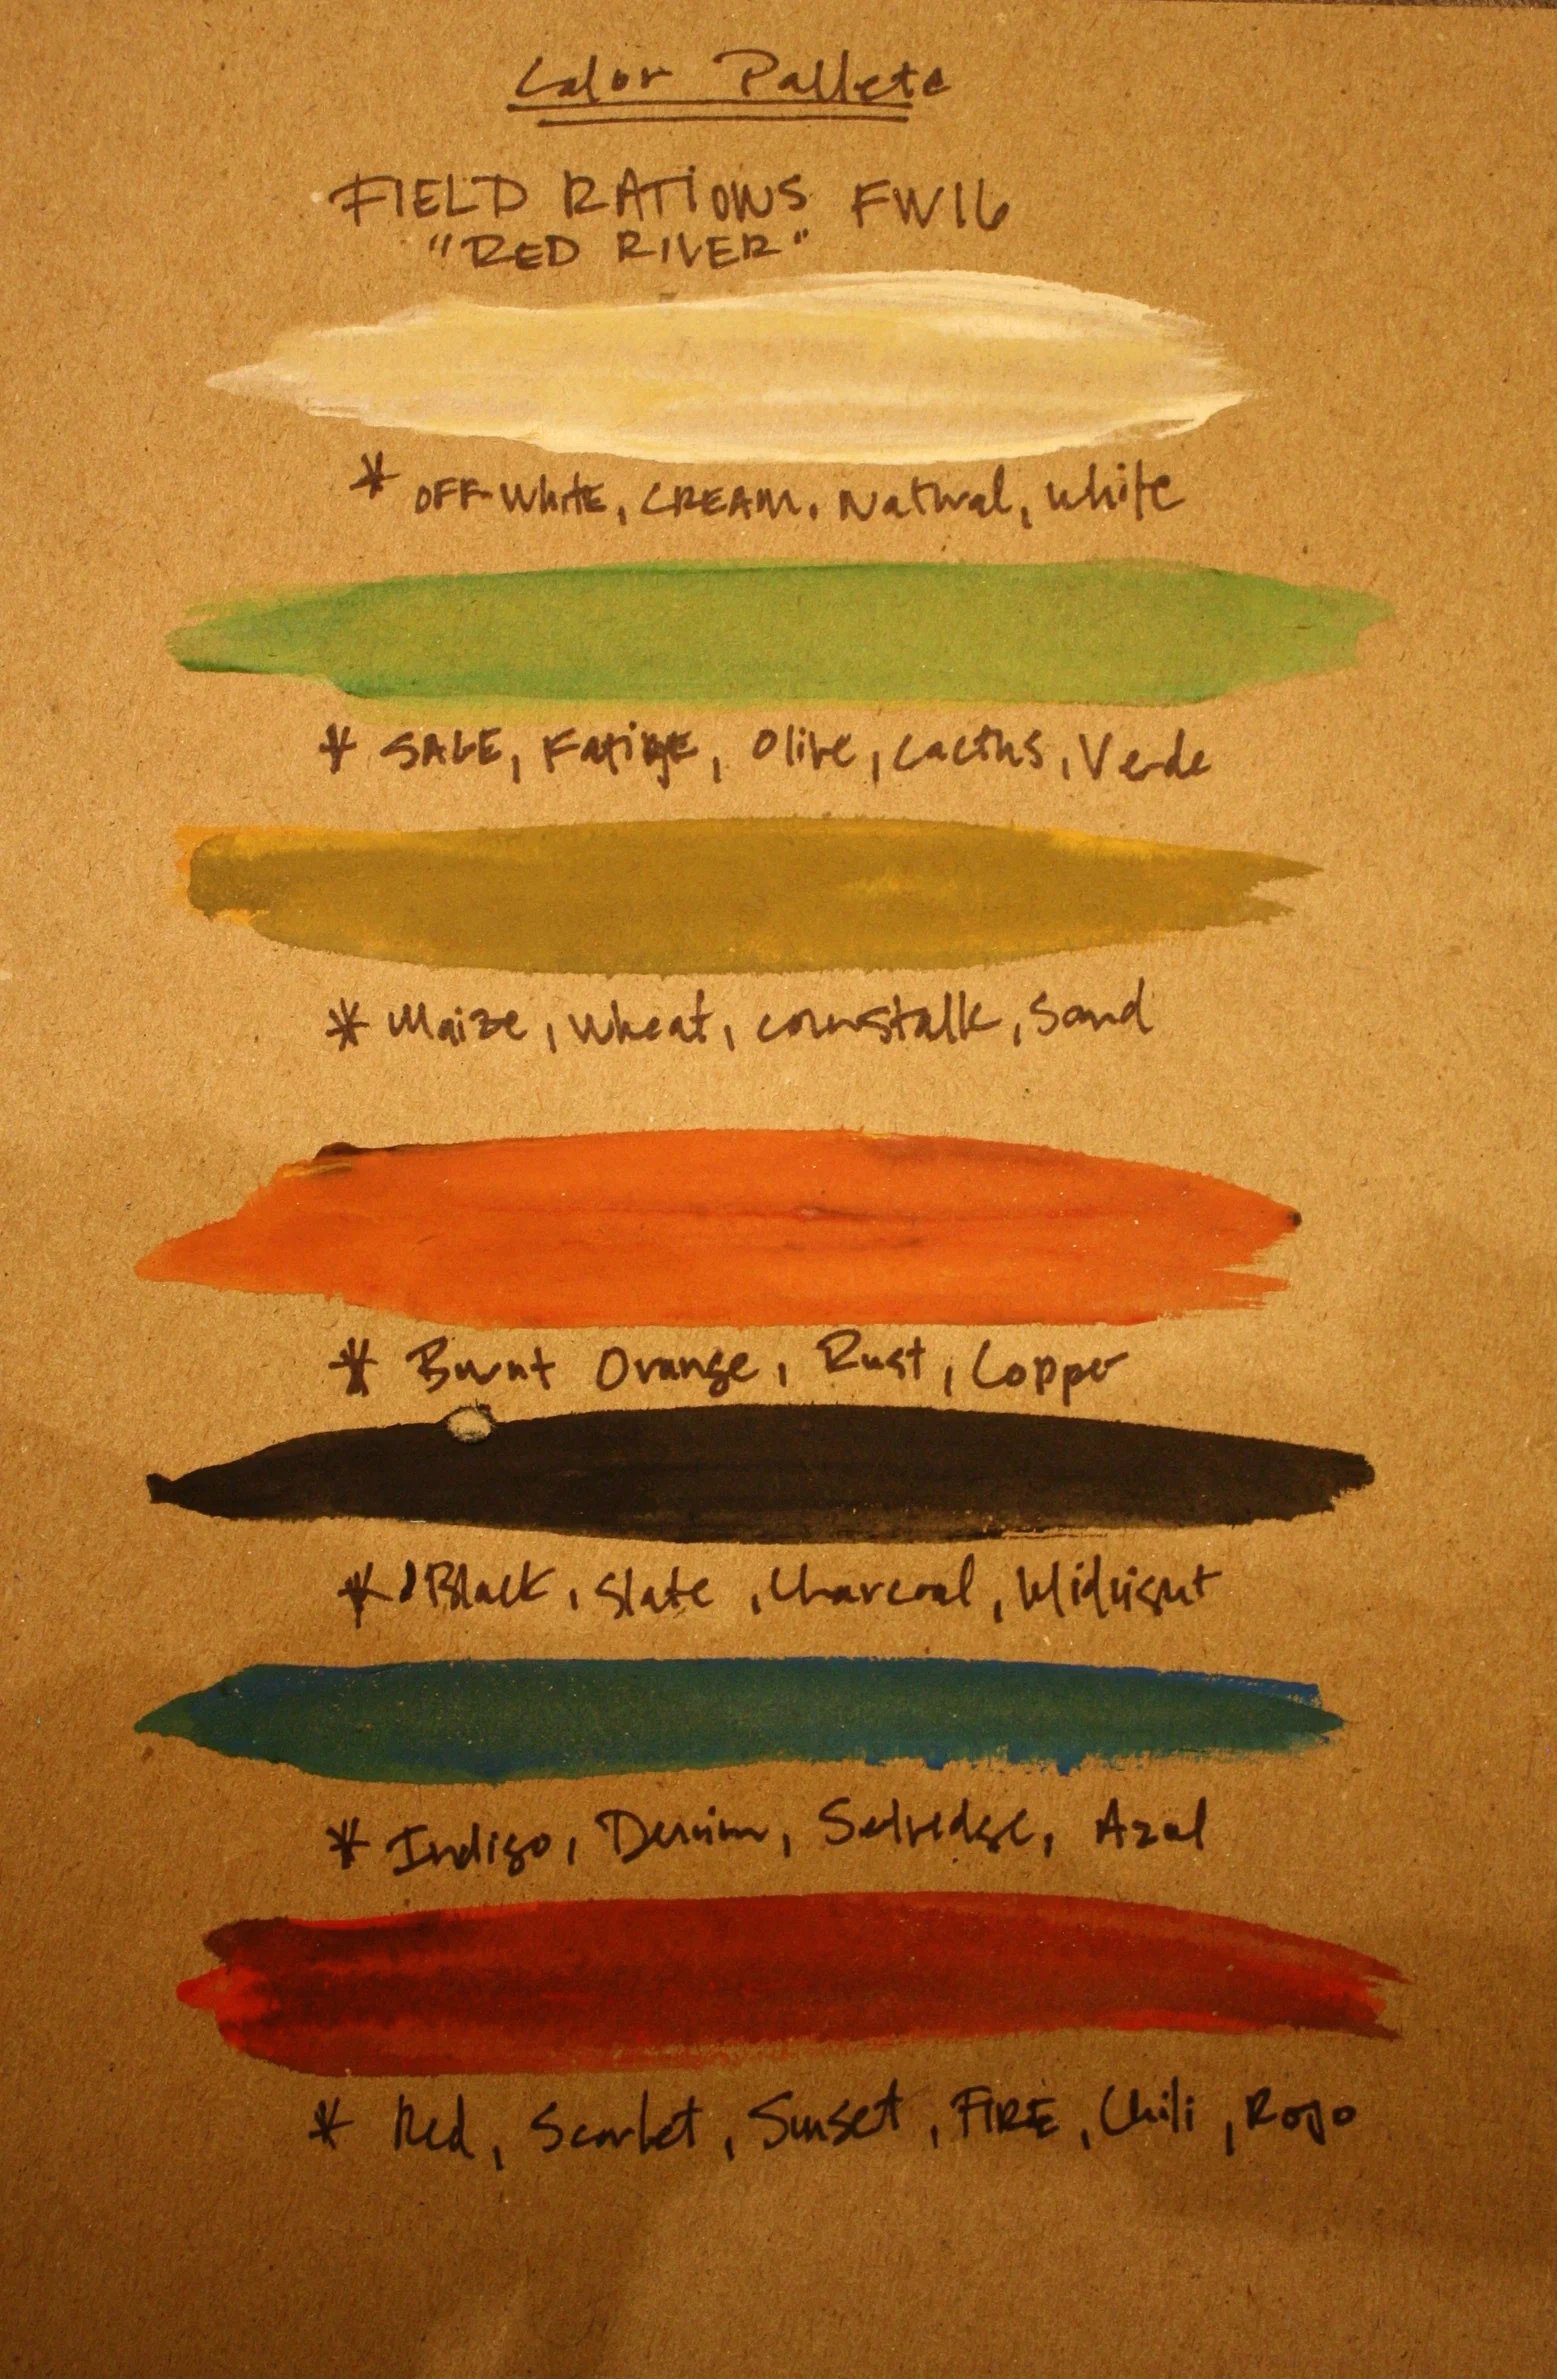 Color Pallete
FIELD RATIONS FW16
"RED RIVER"
* OFF-White, CREAM, Natural, White
* SAGE, Fatigue, Olive, Cactus, Verde
* Maize, Wheat, cornstalk, Sand
* Burnt Orange, Rust, Copper
* Black, Slate, Charcoal, Midnight
* Indigo, Denim, Selvedge, Azul
* Red, Scarlet, Sunset, FIRE, Chili, Rojo